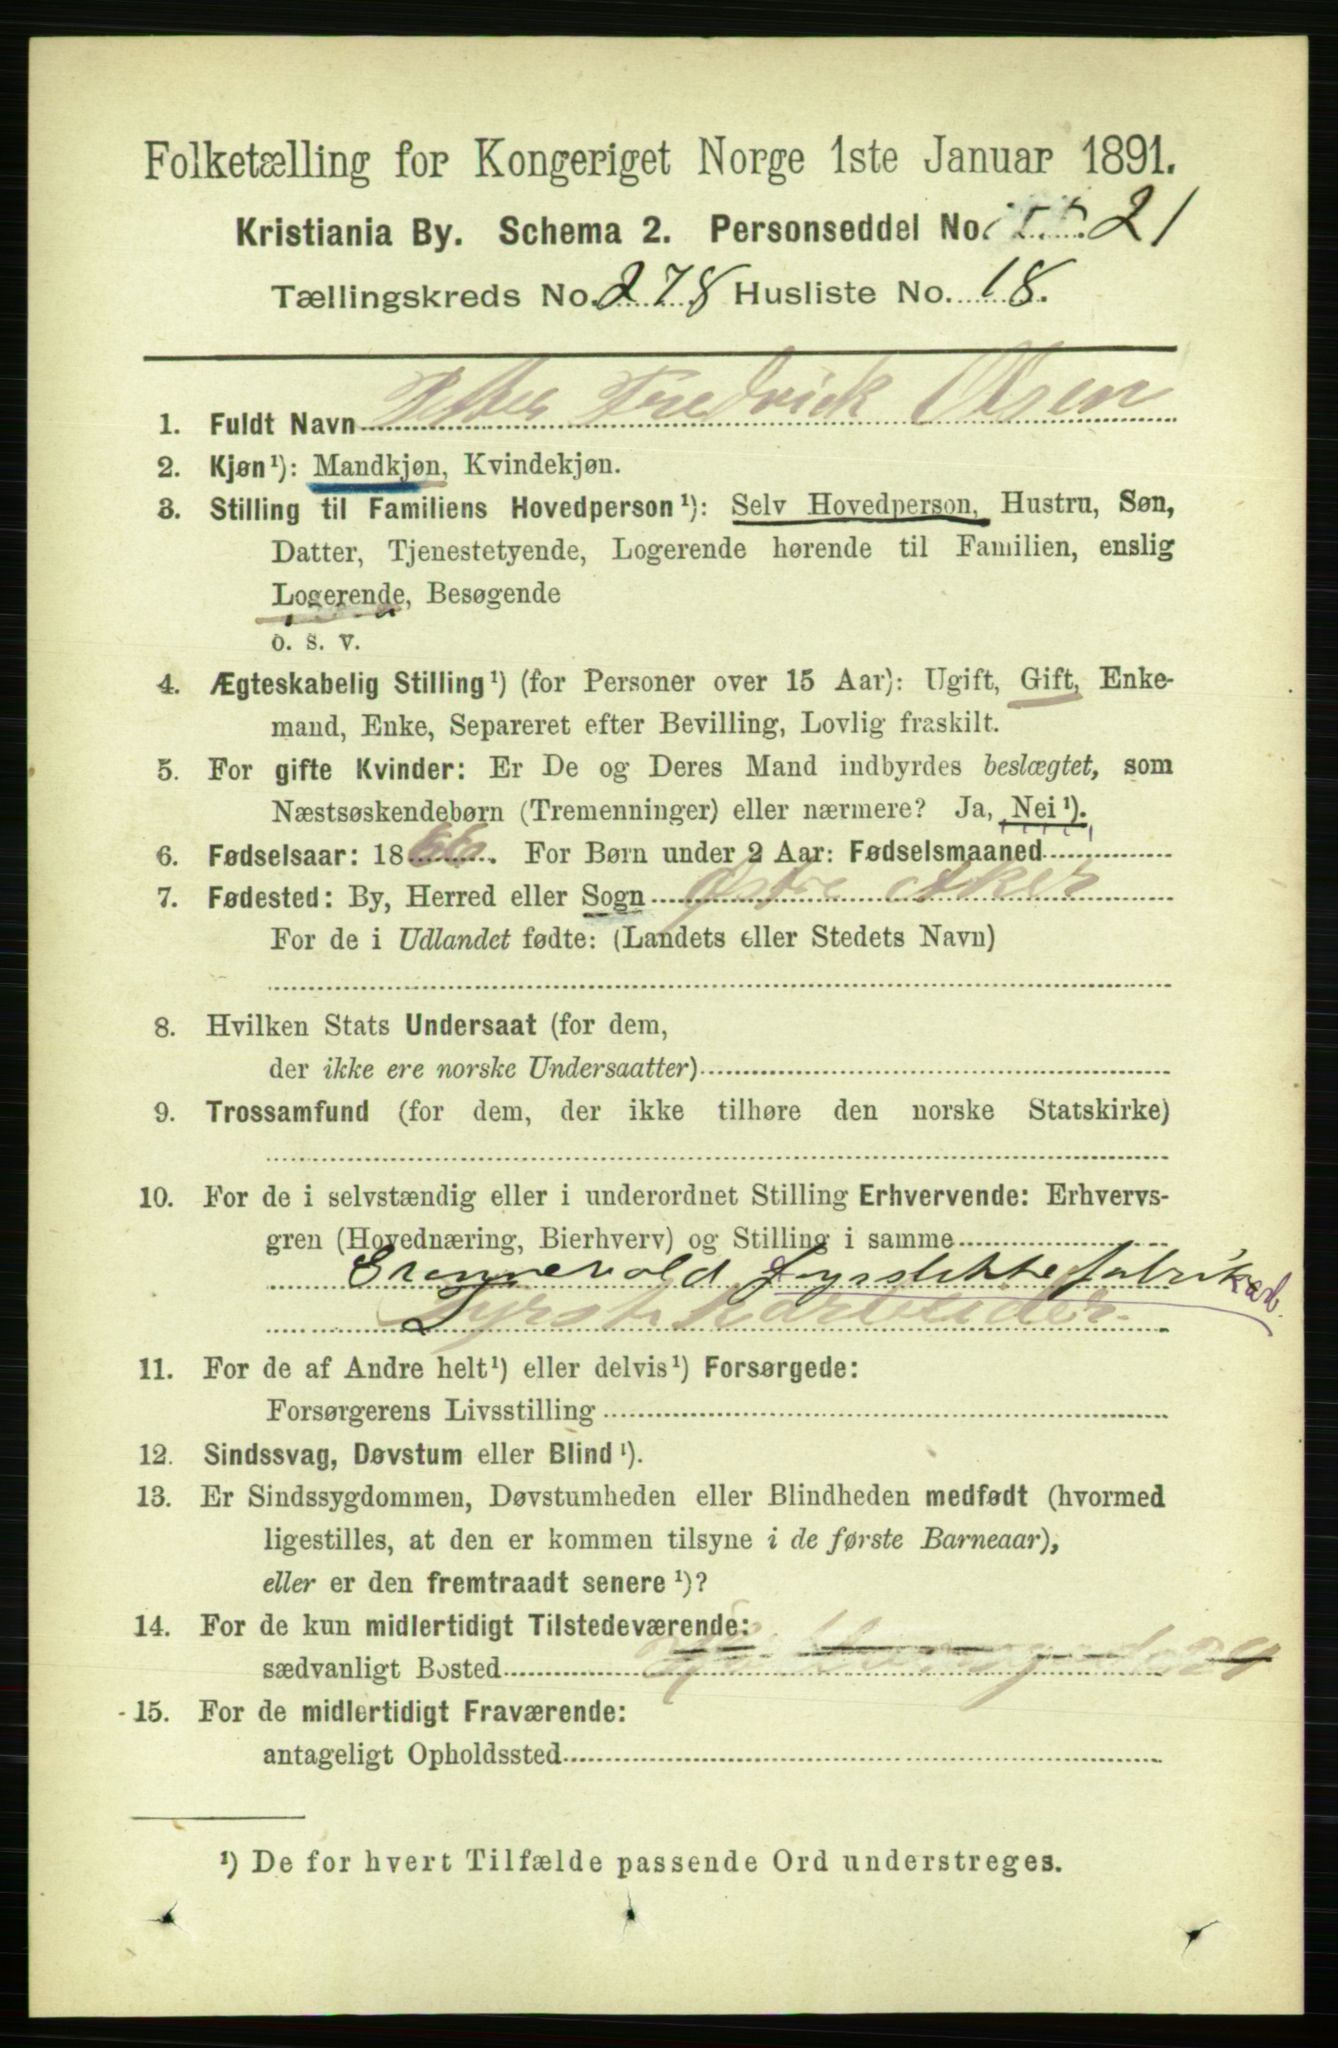 Folketælling for Kongeriget Norge 1ste Januar 1891.
Kristiania By. Schema 2. Personseddel No. 21
Tællingskreds No. 278 Husliste No. 18.
1. Fuldt Navn Petter Fredrick Olsen
2. Kjøn¹): Mandkjøn, Kvindekjøn.
3. Stilling til Familiens Hovedperson¹): Selv Hovedperson, Hustru, Søn,
Datter, Tjenestetyende, Logerende hørende til Familien, enslig
Logerende, Besøgende
o. s. v.
4. Ægteskabelig Stilling¹) (for Personer over 15 Aar): Ugift, Gift, Enke-
mand, Enke, Separeret efter Bevilling, Lovlig fraskilt.
5. For gifte Kvinder: Er De og Deres Mand indbyrdes beslægtet, som
Næstsøskendebørn (Tremenninger) eller nærmere? Ja, Nei¹).
6. Fødselsaar: 1866. For Børn under 2 Aar: Fødselsmaaned
7. Fødested: By, Herred eller Sogn Østre Aker
For de i Udlandet fødte: (Landets eller Stedets Navn)
8. Hvilken Stats Undersaat (for dem,
der ikke ere norske Undersaatter)
9. Trossamfund (for dem, der ikke tilhøre den norske Statskirke)
10. For de i selvstændig eller i underordnet Stilling Erhvervende: Erhvervs-
gren (Hovednæring, Bierhverv) og Stilling i samme
Grønvold Fyrstikkefabrik arb.
Fyrstikarbeider.
11. For de af Andre helt¹) eller delvis¹) Forsørgede:
Forsørgerens Livsstilling
12. Sindssvag, Døvstum eller Blind¹).
13. Er Sindssygdommen, Døvstumheden eller Blindheden medfødt (hvormed
ligestilles, at den er kommen tilsyne i de første Barneaar),
eller er den fremtraadt senere¹)?
14. For de kun midlertidigt Tilstedeværende:
sædvanligt Bosted 24
15. For de midlertidigt Fraværende:
antageligt Opholdssted
¹) De for hvert Tilfælde passende Ord understreges.